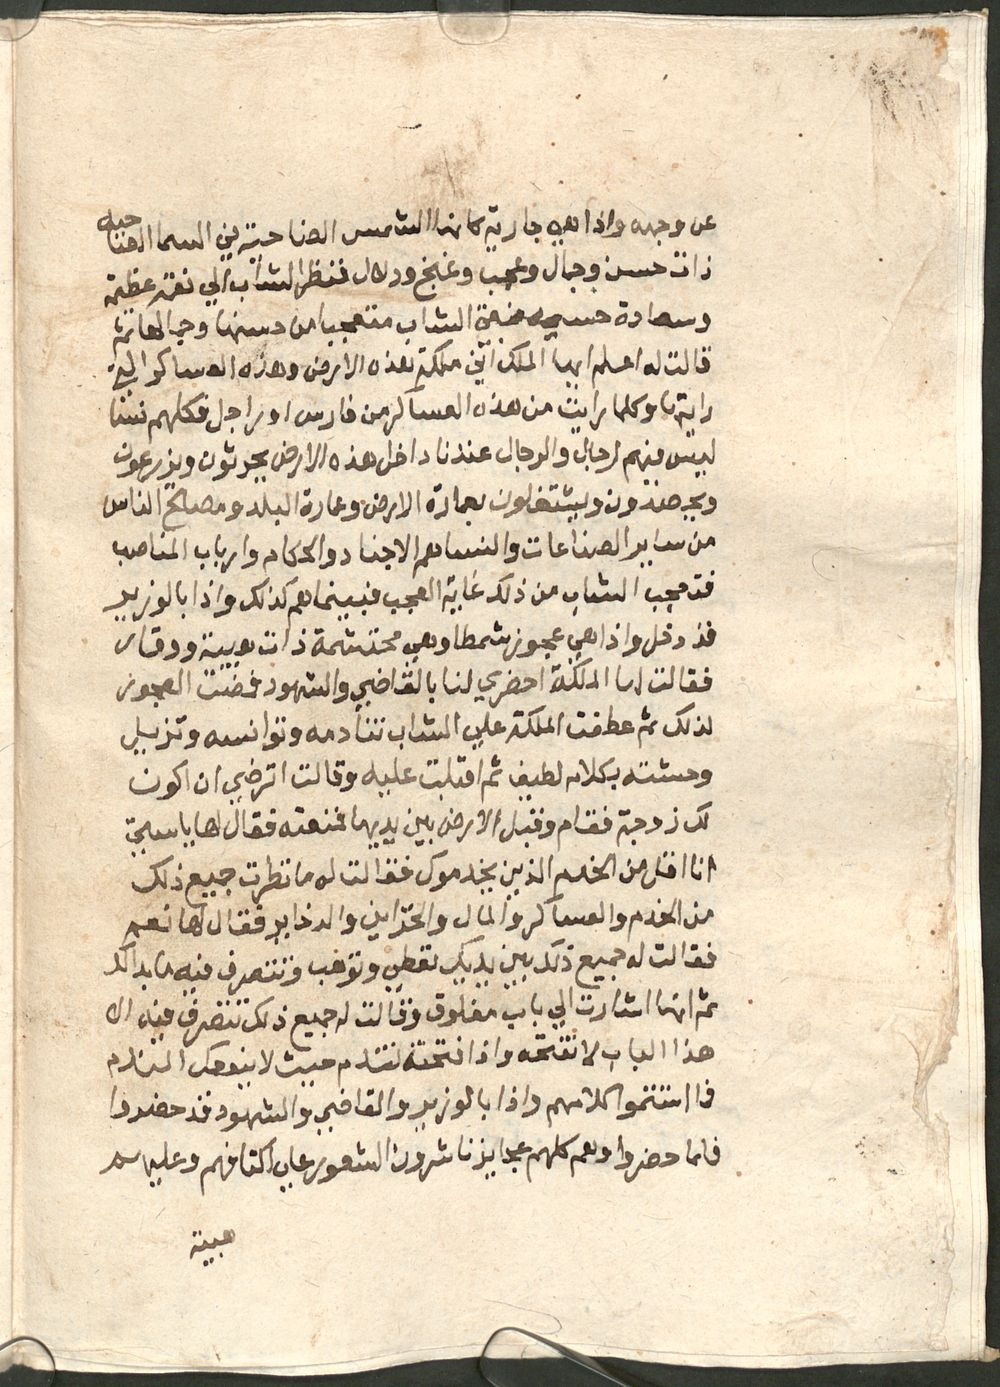 عن وجهه واذا هي جارية كانها الشمس الضاحية في السما الضاحيه
ذات حسن وجمال وعجب وغنج ودلال فنظر الشاب الي نعمة عظيمة
وسعادة جسيمه فبقي الشاب متعجبا من حسنها وجمالها ثم
قالت له اعلم ايها الملك انني ملكة هذه الارض وهذه العساكر التي
رايتها وكلما رايت من هذه العساكر من فارس او راجل فكلهم نسا
ليس فيهم رجال والرجال عندنا داخل هذه الارض يحرثون ويزرعون
ويحصدون ويشتغلون بعمارة الارض وعمارة البلد ومصالح الناس
من ساير الصناعات والنسا هم الاجناد والحكام وارباب المناصب
فتعجب الشاب من ذلك غاية العجب فبينما هم كذلك واذا بالوزير
قد دخل واذا هي عجوز شمطا وهي محتشمة ذات هيبة ووقار
فقالت لها الملكة احضري لنا بالقاضي والشهود فمضت العجوز
لذلك ثم عطفت الملكة علي الشاب تنادمه وتوانسه وتزيل
وحشته بكلام لطيف ثم اقبلت عليه وقالت اترضي ان اكون
لك زوجة فقام وقبل الارض بين يديها فمنعته فقال لها ياستي
انا اقل من الخدم الذين يخدموك فقالت له ما نظرت جميع ذلك
من الخدم والعساكر والمال والخزاين والدخاير فقال لها نعم
فقالت له جميع ذلك بين يديك تعطي وتوهب وتتصرف فيه ما بدالك
ثم انها اشارت الي باب مغلوق وقالت له جميع ذلك تتصرف فيه الا
هذا الباب لا تفتحه واذا فتحته تندم حيث لا ينفعك الندم
فما استتموا كلامهم واذا بالوزير والقاضي والشهود قد حضروا
فلما حضروا وهم كلهم عجايز ناشرون الشعور علي اكتافهم وعليهم
هيبة